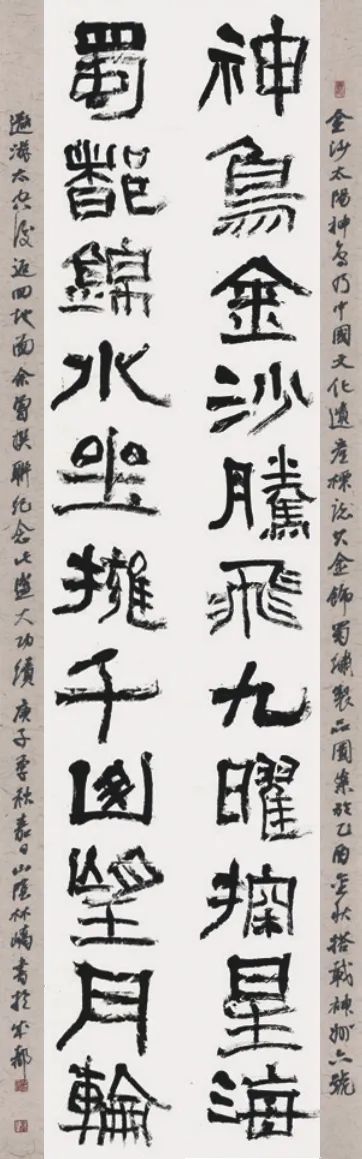 金沙太陽神鳥乃中國文化遺產標誌其金飾蜀繡製品圖案於乙酉金秋搭載神州六號
神鳥金沙騰飛九曜探星海
蜀都錦水坐擁千山望月輪
遨游太空後返回地面余曾撰聯紀念此盛大功績 庚子季秋嘉日山陰林嶠書於成都